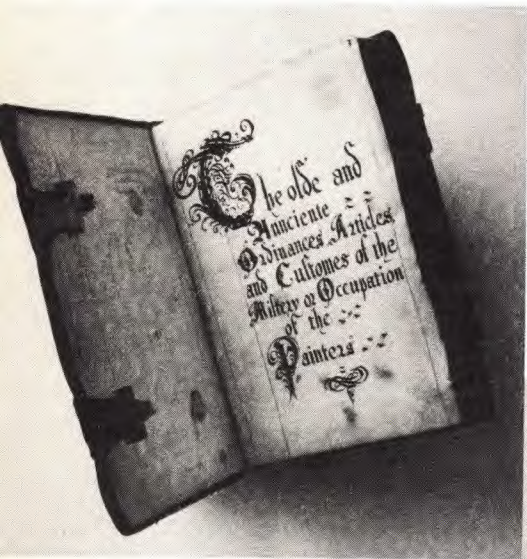 The olde and
Annciente
Ordinances Articles
and Customes of the
Mistery or Occupation
of the
Painters